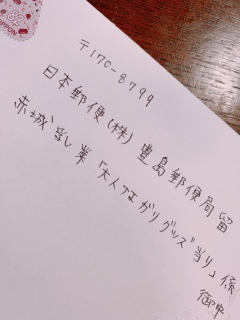 82
NIPPON
〒170-8799
日本郵便(株) 豊島郵便局留
赤城乳業「大人なガリグッズ当り」係
御中